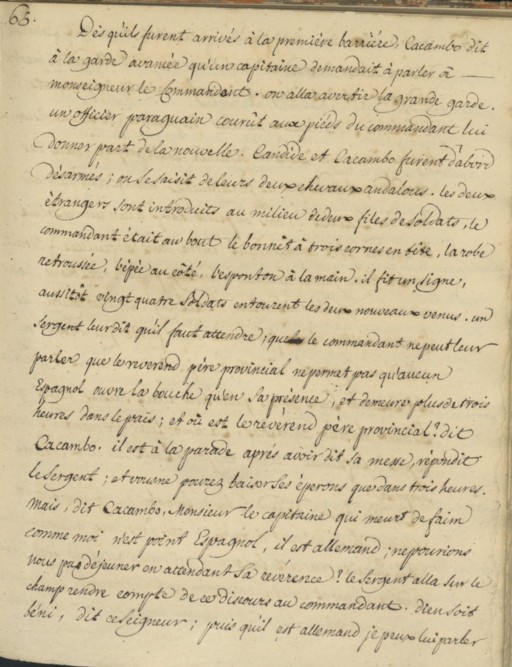 63.
Dès qu'ils furent arrivés à la première barriére, Cacambo dit
à la garde avancée qu'un capitaine demandait à parler à
monseigneur le Commandant. on alla avertir la grande garde.
un officier paraguain courût aux piéds du commandant lui
donner part de la nouvelle. Candide et Cacambo furent d'abord
désarmés ; on se saisit de leurs deux chevaux andalous. les deux
étrangers sont introduits au milieu de deux files de soldats, le
commandant était au bout le bonnet à trois cornes en tête, la robe
retroussée, l'épée au côté, l'esponton à la main. il fit un signe,
aussitôt vingt quatre soldats entourent les deux nouveaux venus. un
sergent leur dit qu'il faut attendre ; que le commandant ne peut leur
parler que le reverend pére provincial ne permet pas qu'aucun
Espagnol ouvre la bouche qu'en sa présence, et demeure plus de trois
heures dans le païs ; et où est le révérend père provincial ? dit
Cacambo. il est à la parade après avoir dit sa messe, répondit
le Sergent ; et vous ne pourez baiser ses éperons que dans trois heures.
Mais, dit Cacambo, Monsieur le capitaine qui meurt de faim
comme moi n'est point Espagnol, il est allemand ; ne pourions
nous pas déjeuner en attendant sa révérence ? le Sergent alla sur le
champ rendre compte de ce discours au commandant. Dieu soit
béni, dit ce seigneur ; puis qu'il est allemand je peux lui parler